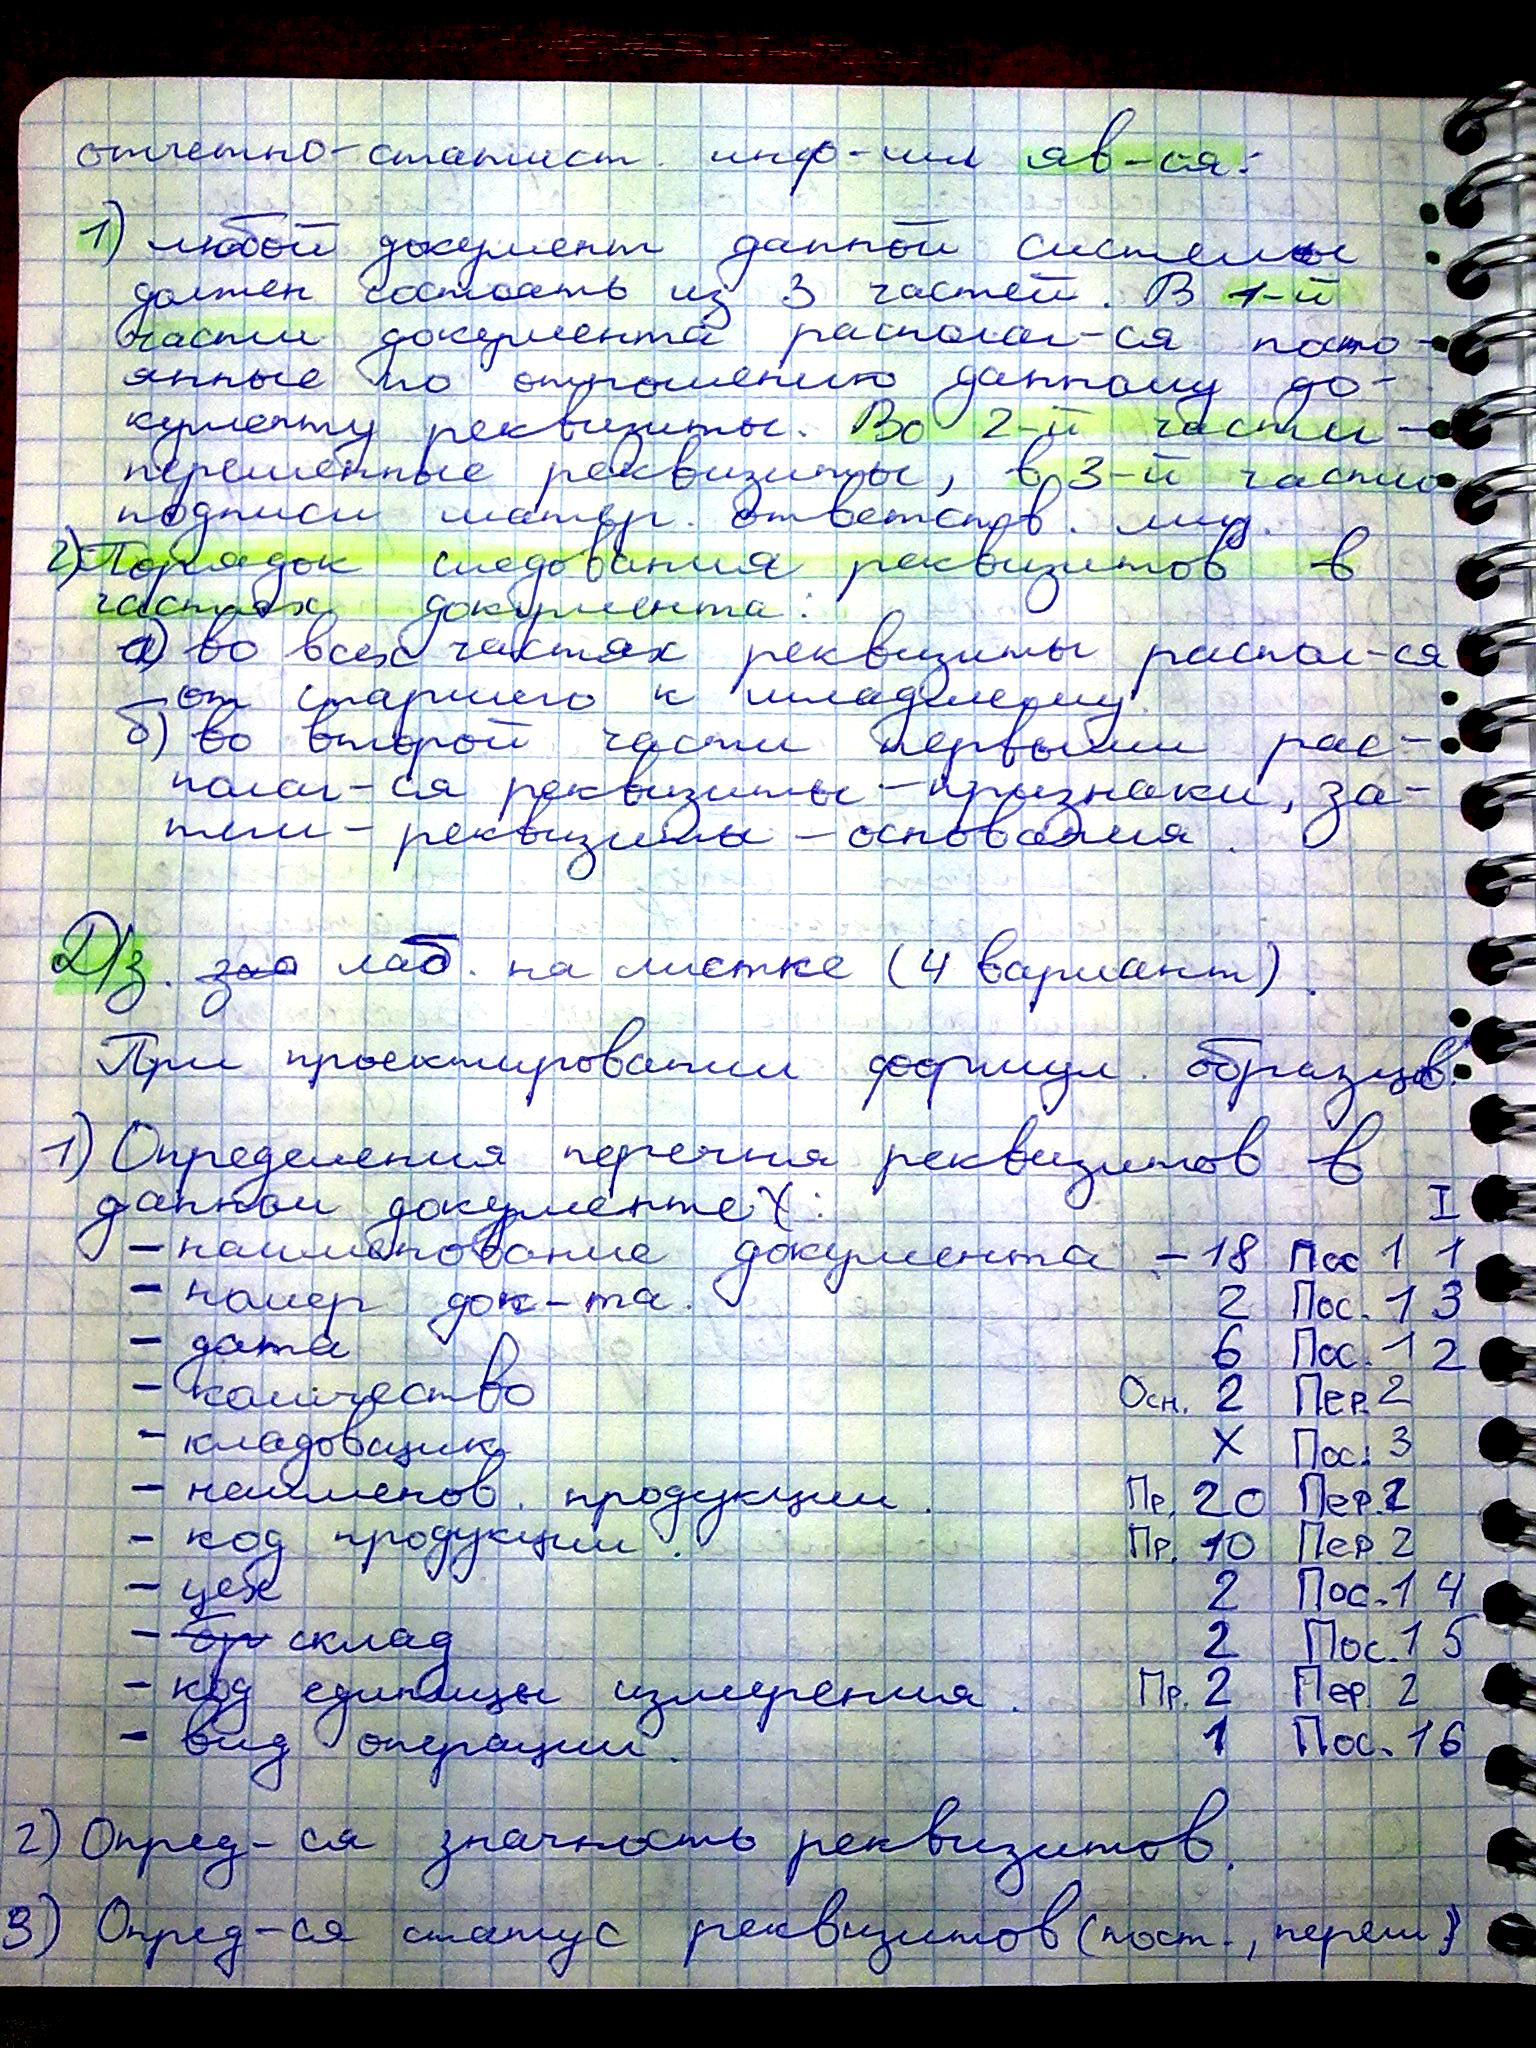 отчетно-статист. инф-ии яв-ся:
1) любой документ данной системы
должен состоять из 3 частей. В 1-й
части документа располаг-ся посто-
янные по отношению данному до-
кументу реквизиты. Во 2-й части -
переменные реквизиты, в 3-й части
подписи матер. ответств. лиц.
2) Порядок следования реквизитов в
частях документа:
а) во всех частях реквизиты распол-ся
от старшего к младшему.
б) во второй части первыми рас-
полаг-ся реквизиты-признаки, за-
тем - реквизиты - основания.
Д/з. лаб. на листке (4 вариант).
При проектировании формул. образцов:
1) Определения перечня реквизитов в
данном документе: I
- наименование документа - 18 Пос 1 1
- номер док-та. 2 Пос. 1 3
- дата 6 Пос. 1 2
- количество Осн. 2 Пер. 2
- кладовщик X Пос. 3
- наименов. продукции. Пр. 20 Пер. 2
- код продукции. Пр. 10 Пер. 2
- цех 2 Пос. 1 4
- склад 2 Пос. 1 5
- код единицы измерения. Пр. 2 Пер. 2
- вид операции. 1 Пос. 1 6
2) Опред-ся значность реквизитов.
3) Опред-ся статус реквизитов (пост., перем.)